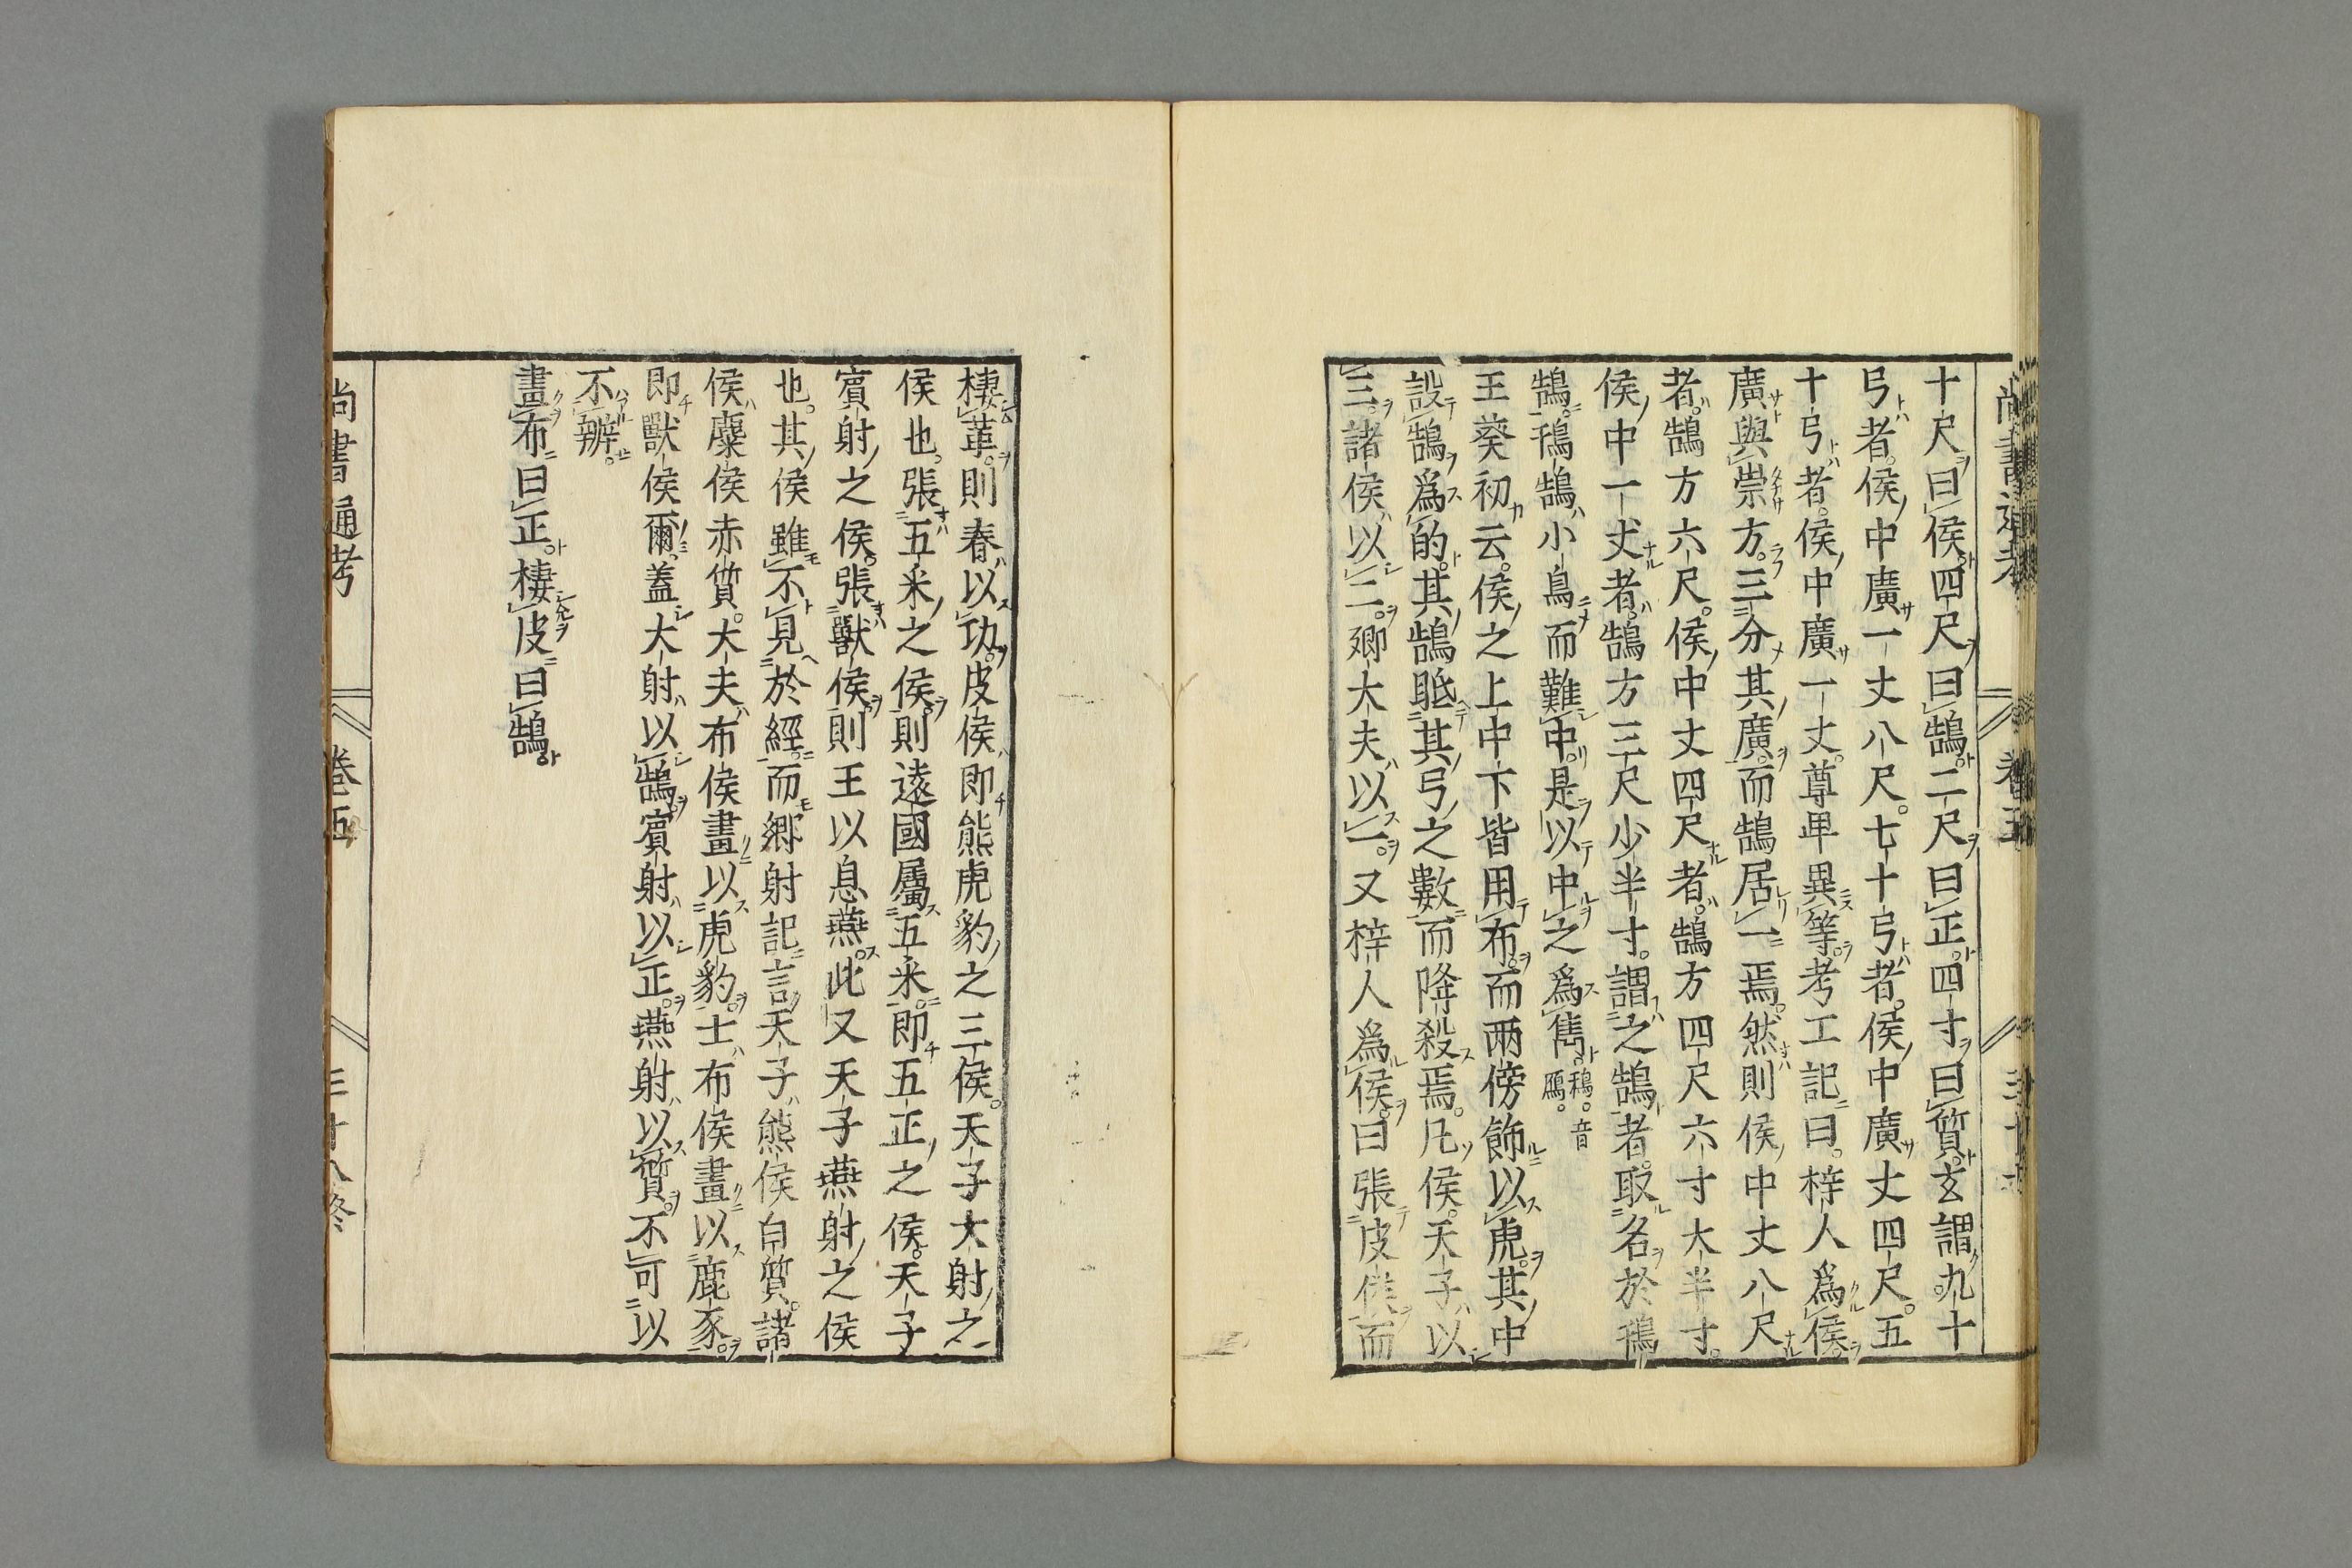 十尺曰侯四尺曰鵠二尺曰正四寸曰質玄謂九十
弓者侯中廣一丈八尺七十弓者侯中廣丈四尺五
十弓者侯中廣一丈尊卑異等考工記曰梓人爲侯
廣與崇方三分其廣而鵠居一焉然則侯中丈八尺
者鵠方六尺侯中丈四尺者鵠方四尺六寸大半寸
侯中一丈者鵠方三尺少半寸謂之鵠者取名於鳱
鵠鳱鵠小鳥而難中是以中之爲雋鳱音鴈
王葵初云侯之上中下皆用布而兩傍飾以虎其中
設鵠爲的其鵠眡其弓之數而降殺焉凡侯天子以
三諸侯以二卿大夫以一又梓人爲侯曰張皮侯而
棲革則春以功皮侯即熊虎豹之三侯天子大射之
侯也張五采之侯則遠國屬五采即五正之侯天子
賓射之侯張獸侯則王以息燕此又天子燕射之侯
也其侯雖不見於經而鄉射記言天子熊侯白質諸
侯麋侯赤質大夫布侯畫以虎豹士布侯畫以鹿豕
即獸侯爾蓋大射以鵠賓射以正燕射以質不可以
不辨
畫布曰正棲皮曰鵠
尚書通考 卷五 三十八終